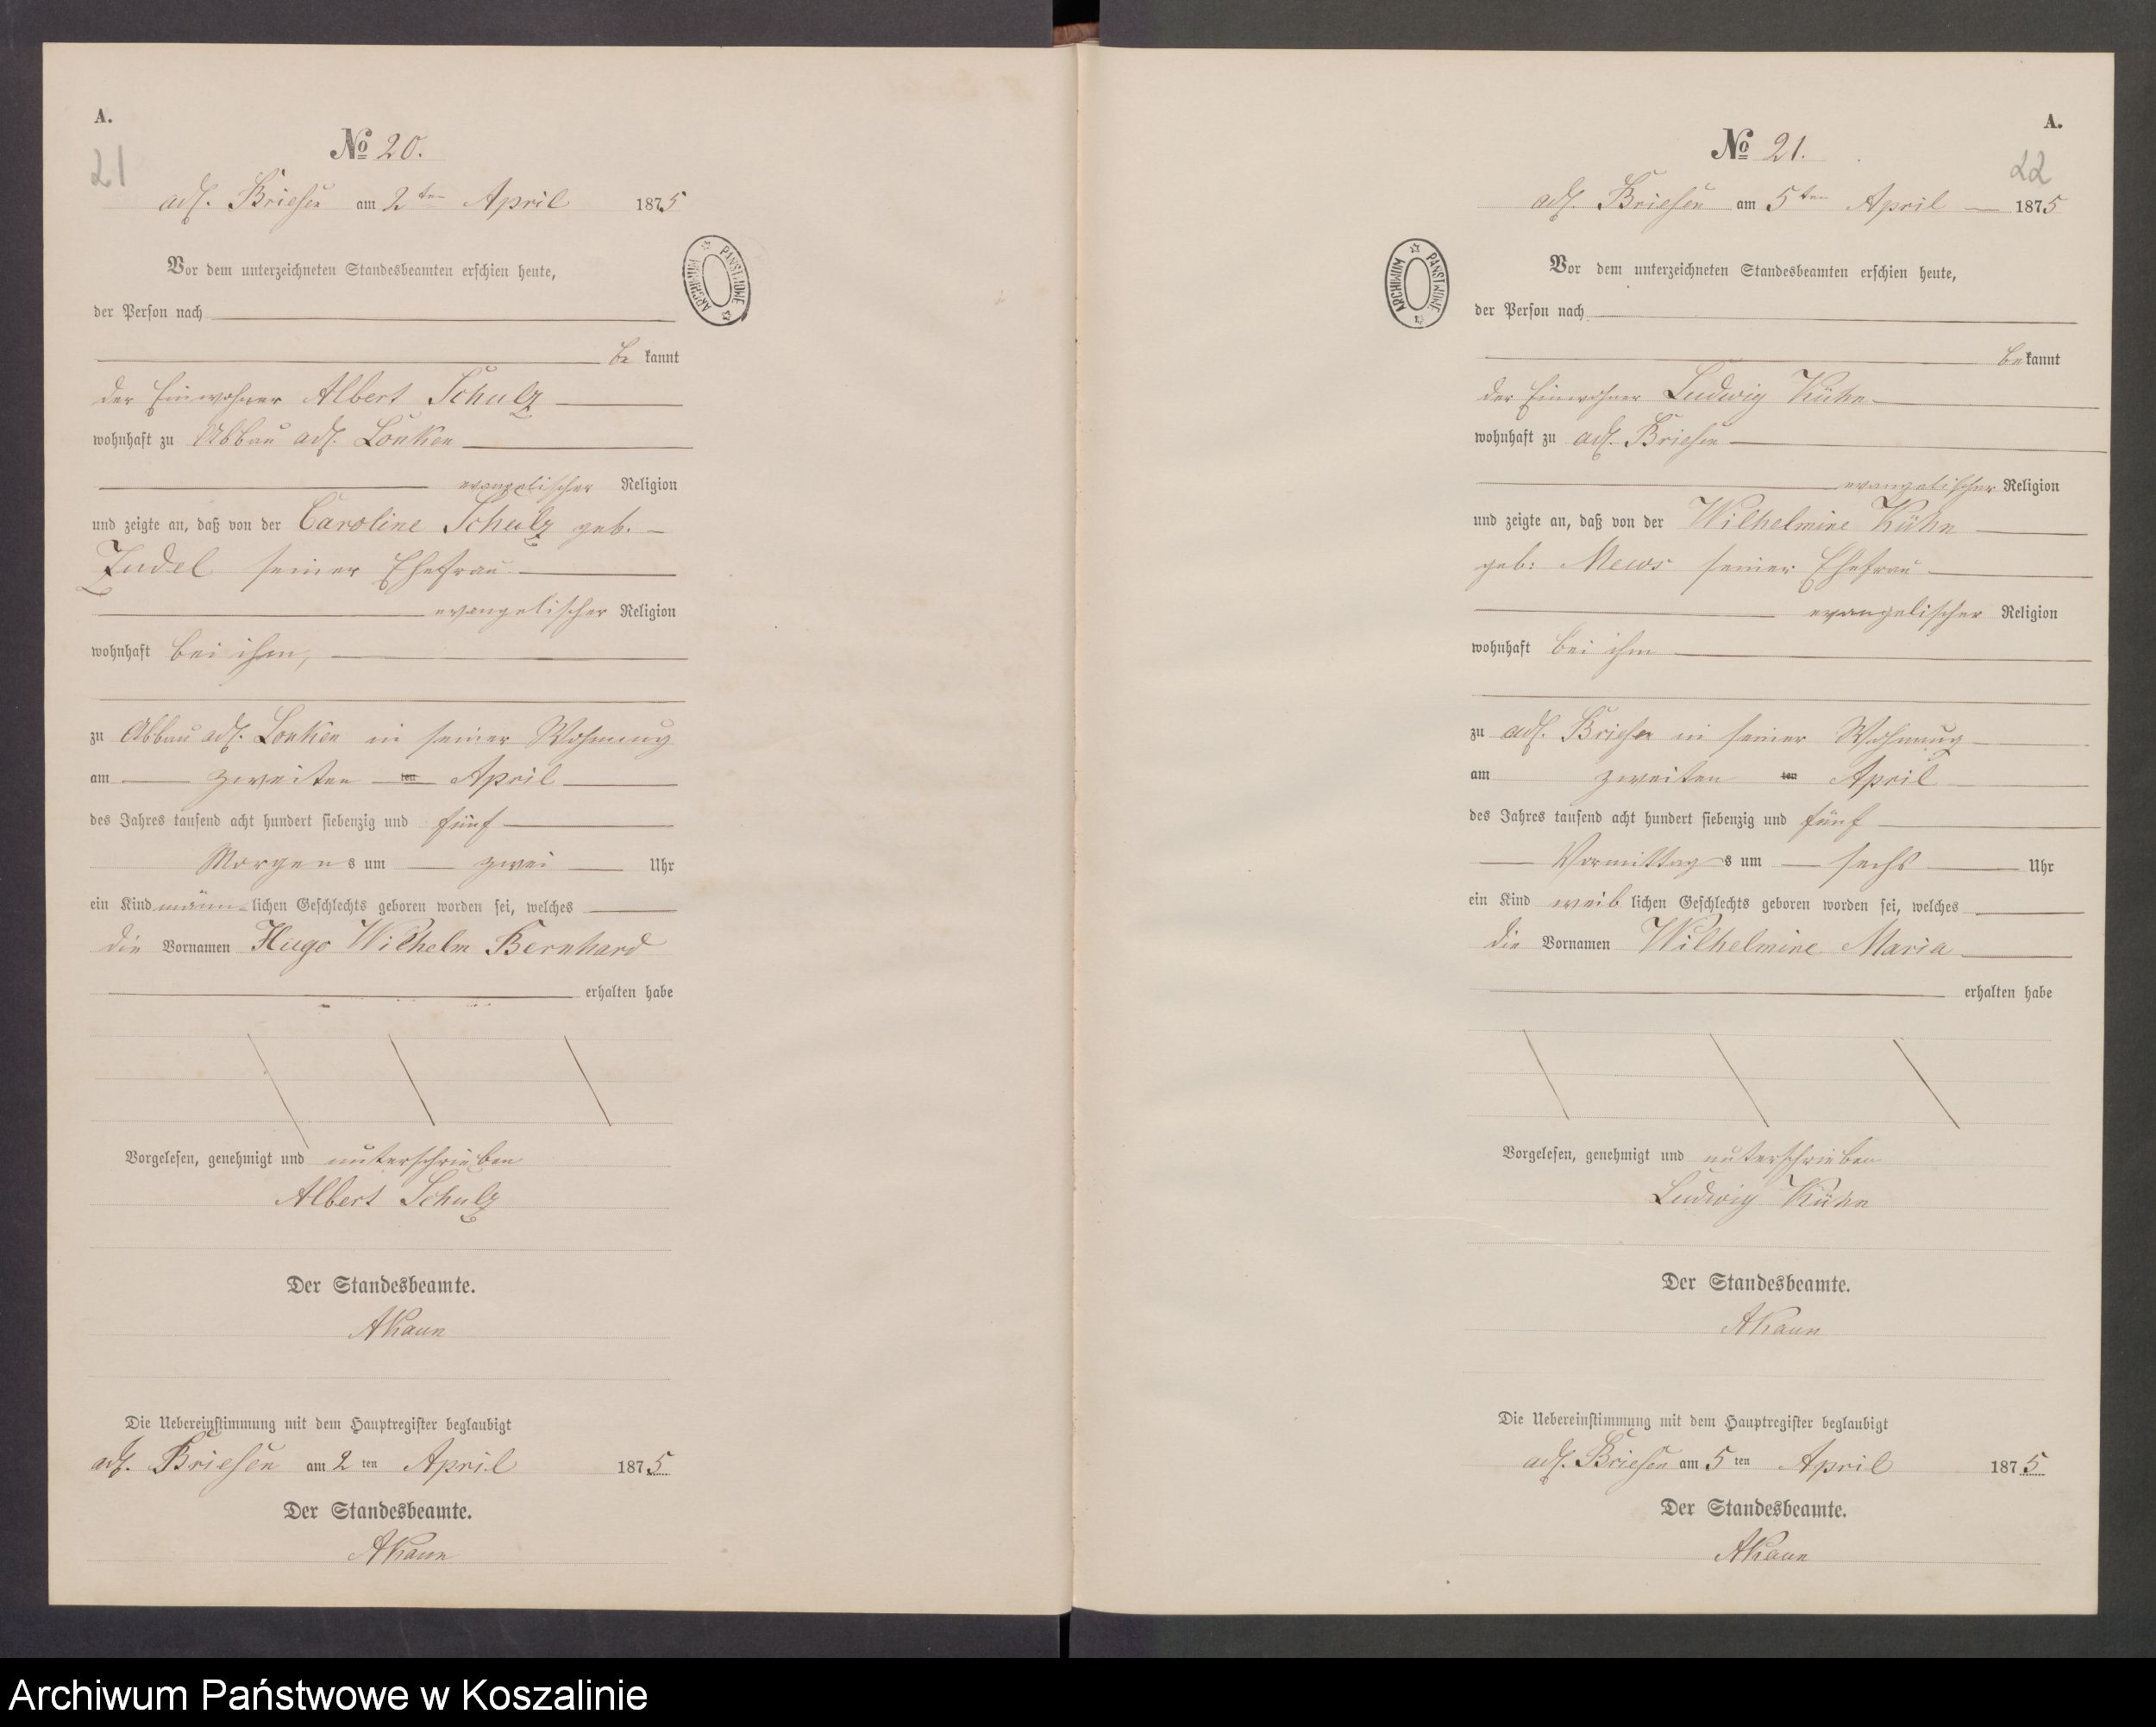 A.
21
№ 20.
adl. Briesen am 2ten April 1875
Vor dem unterzeichneten Standesbeamten erschien heute,
der Person nach
be kannt
der Einwohner Albert Schulz
wohnhaft zu Abbau adl. Lonken
evangelischer Religion
und zeigte an, daß von der Caroline Schulz geb.
seiner Ehefrau
evangelischer Religion
wohnhaft bei ihm,
zu Abbau adl. Lonken in seiner Wohnung
am zweiten ten April
des Jahres tausend acht hundert siebenzig und fünf
Morgens um zwei Uhr
ein Kind männ-lichen Geschlechts geboren worden sei, welches
die Vornamen Hugo Wilhelm Bernhard
erhalten habe
Vorgelesen, genehmigt und unterschrieben
Albert Schulz
Der Standesbeamte.
Die Uebereinstimmung mit dem Hauptregister beglaubigt
adl. Briesen am 2 ten April 1875
Der Standesbeamte.
ARCHIWUM PAŃSTWOWE
A.
22
№ 21.
adl. Briesen am 5ten April 1875
ARCHIWUM PAŃSTWOWE
Vor dem unterzeichneten Standesbeamten erschien heute,
der Person nach
bekannt
der Einwohner Ludwig Kühn
wohnhaft zu adl. Briesen
evangelischer Religion
und zeigte an, daß von der Wilhelmine Kühn
geb: Mews seiner Ehefrau
evangelischer Religion
wohnhaft bei ihm
zu adl. Briesen in seiner Wohnung
am zweiten ten April
des Jahres tausend acht hundert siebenzig und fünf
Vormittags um sechs Uhr
ein Kind weib lichen Geschlechts geboren worden sei, welches
die Vornamen Wilhelmine Maria
erhalten habe
Vorgelesen, genehmigt und unterschrieben
Ludwig Kühn
Der Standesbeamte.
Die Uebereinstimmung mit dem Hauptregister beglaubigt
adl. Briesen am 5 ten April 1875
Der Standesbeamte.
Archiwum Państwowe w Koszalinie